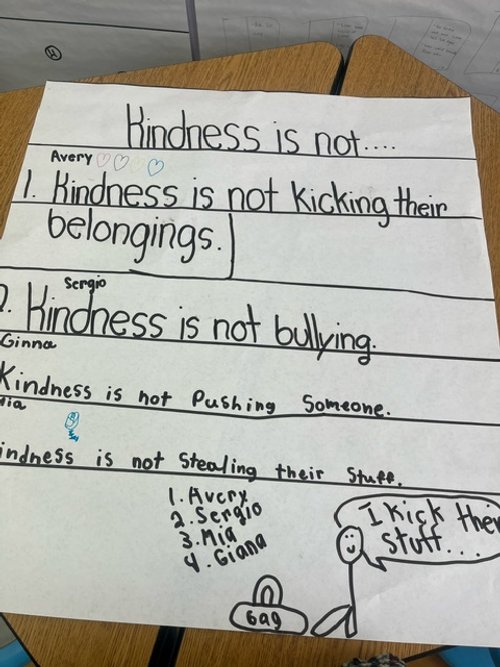 Kindness is not....
Avery
1. Kindness is not kicking their
belongings.
Sergio
2. Kindness is not bullying.
Ginna
Kindness is not Pushing Someone.
Mia
indness is not Stealing their Stuff.
1. Avery
2. Sergio
3. Mia
4. Giana
I kick their
stuff...
bag